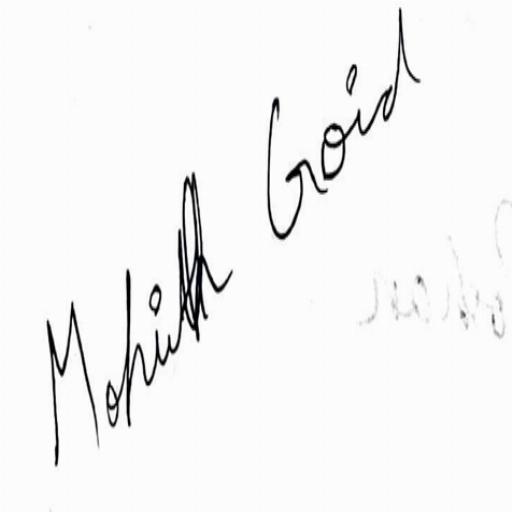 Mohith Groid